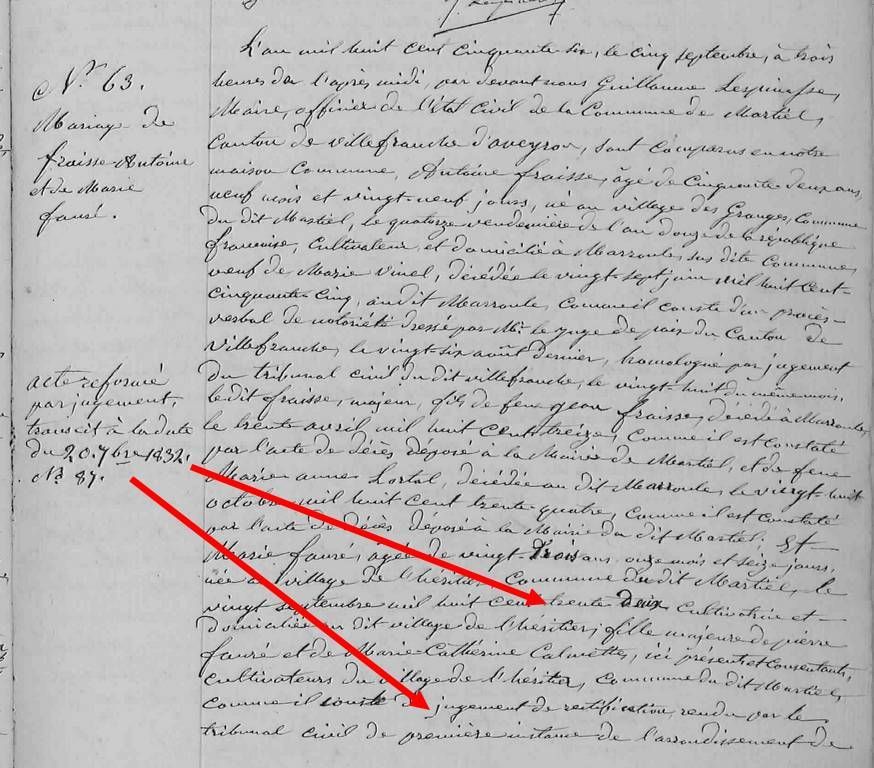 N.° 63.
Mariage de
fraisse Antoine
et de Marie
fauré.
acte reformé
par jugement,
transcrit à la date
du 20. 7bre 1832.
N.° 87.
L'an mil huit cent cinquante six, le cinq septembre, à trois
heures de l'après midi, par devant nous Guillaume Lespinasse,
Maire, officier de l'état civil de la Commune de Martiel,
Canton de Villefranche d'aveyron, sont comparus en notre
maison Commune, Antoine fraisse, âgé de Cinquante deux ans,
neuf mois et vingt neuf jours, né au village des Granges, Commune
du dit Martiel, le quatorze vendemiaire de l'an douze de la république
française, Cultivateur et domicilié à Marroule, sus dite Commune,
veuf de Marie Vinel, décédée le vingt sept juin mil huit Cent-
cinquante Cinq, au dit Marroule, Comme il conste d'un procès-
verbal de notoriété dressé par Mr. le juge de paix du Canton de
Villefranche, le vingt six août dernier, homologué par jugement
du tribunal civil du dit villefranche, le vingt huit du même mois,
le dit fraisse, majeur, fils de feu Jean fraisse, décédé à Marroule,
le trente avril mil huit Cent treize, Comme il est constaté
par l'acte de décès déposé à la Mairie de Martiel, et de feue
Marie anne Lortal, décédée au dit Marroule, le vingt huit
octobre mil huit cent trente quatre, comme il est constaté
par l'acte de décès déposé à la Mairie du dit Martiel; Et
Marie fauré, âgée de vingt trois ans, onze mois et seize jours,
née au village de l'héritier, Commune du dit Martiel, le
vingt septembre mil huit Cent trente deux Cultivatrice et
domiciliée au dit village de l'héritier, fille majeure de pierre
fauré et de Marie Catherine Calmettes, ici présents et Consentants,
cultivateurs du village de l'héritier, Commune du dit Martiel,
Comme il conste du jugement de rectification, rendu par le
tribunal civil de première instance de l'arrondissement de